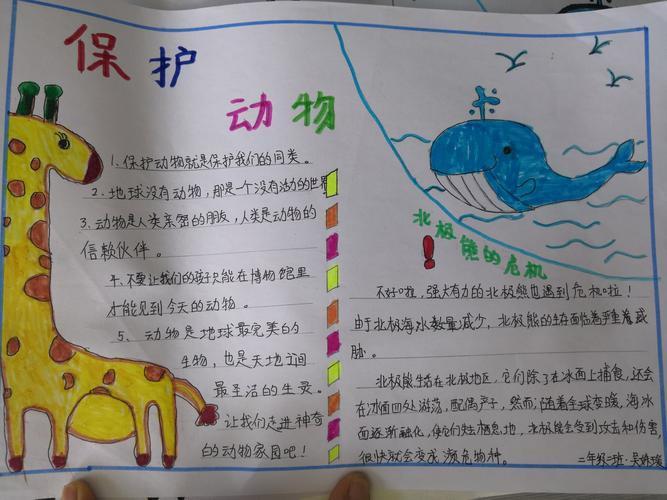 保护
动物
1、保护动物就是保护我们的同类。
2、地球没有动物,那是一个没有活力的世界
3、动物是人类亲密的朋友,人类是动物的
信赖伙伴。
4、不要让我们的孩子只能在博物馆里
才能见到今天的动物。
5、动物是地球最完美的
生物,也是天地之间
最圣洁的生灵。
让我们走进神奇
的动物家园吧!
北极熊的危机
!
不好啦,强大有力的北极熊也遇到危机啦!
由于北极海水数量减少,北极熊的生存面临着严重着威
胁。
北极熊生活在北极地区,它们除了在冰面上捕食,还会
在冰面四处游荡,配偶产子,然而,随着全球变暖,海冰
面逐渐融化,使它们失去栖息地,北极熊会受到攻击和伤害,
很快就会变成濒危物种。
二年级二班·吴